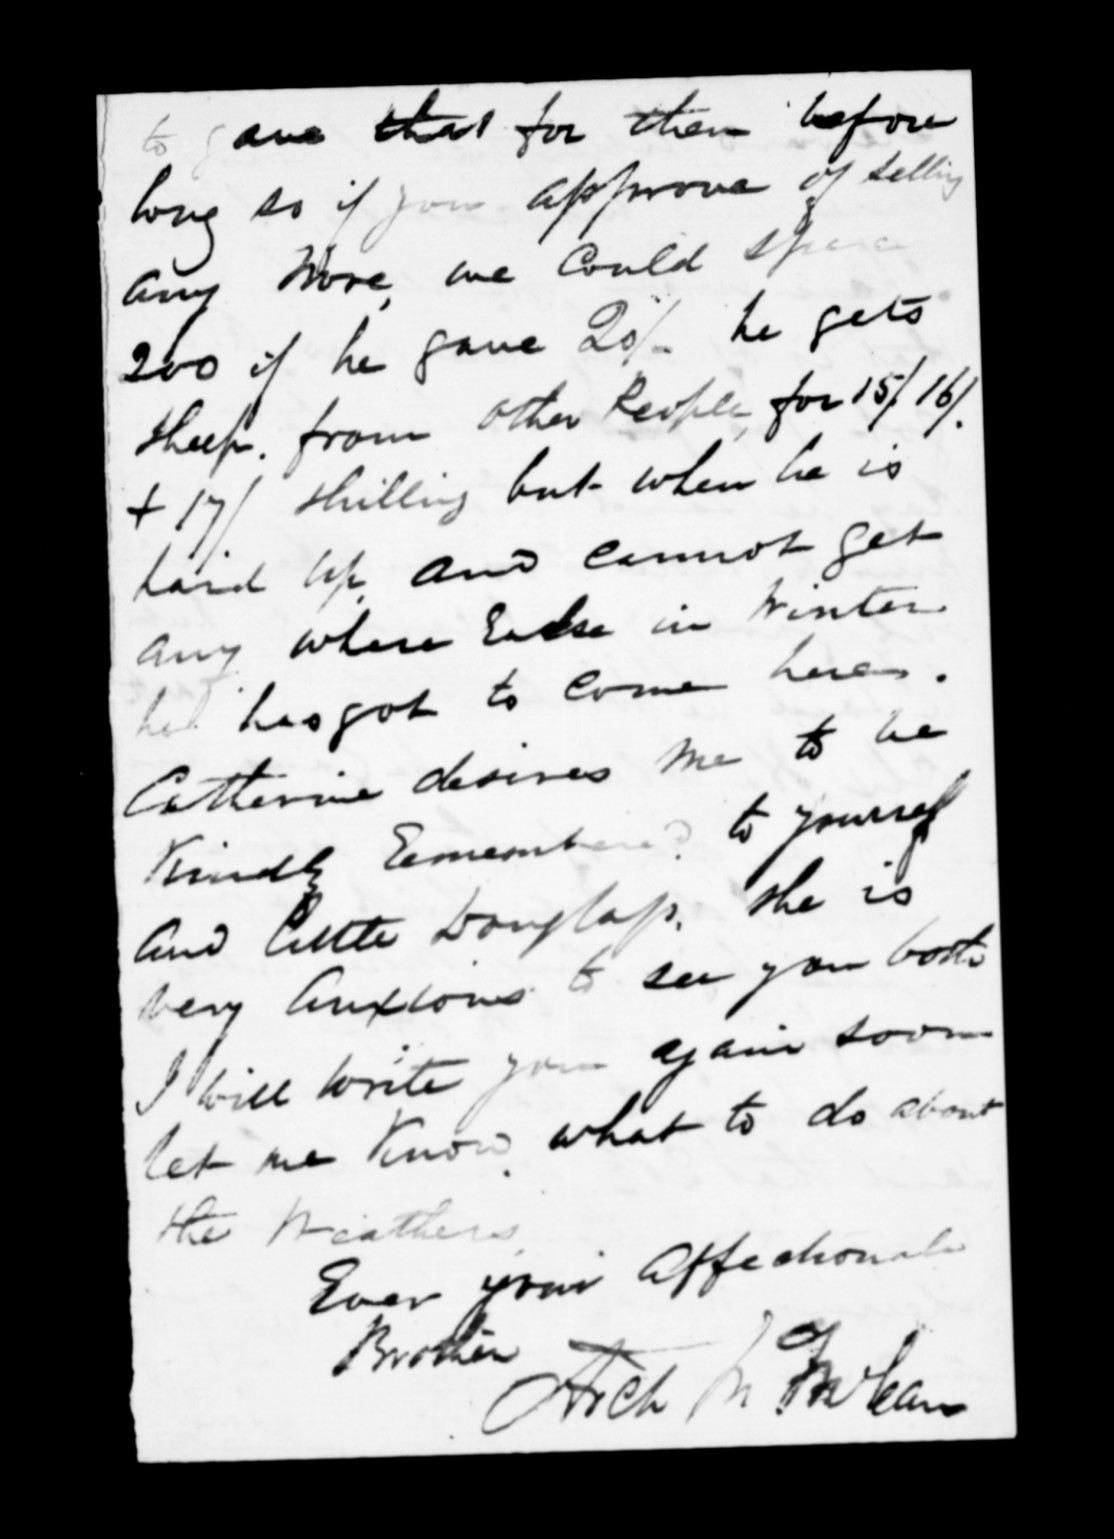 to gave that for them before
long so if you approve of selling
any More, we Could spare
200 if he gave 20/- he gets
sheep. from other People, for 15/ 16/.
+ 17/ shilling but when he is
hard Up, and cannot get
any where Ealse in Winter
he has got to Come here.
Catherine desires me to be
Kindly Remembered to yourself
and Little Douglass. she is
very Anxious to see you both
I will write you again soon
let me Know, what to do about
the Weathers,
Ever your affectionate
Brother
Arch McLean